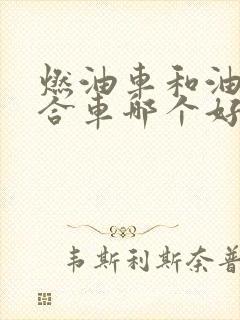 燃油车和油
合车哪个好
韦斯利斯奈普